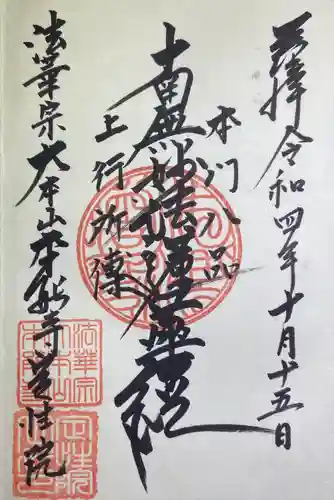 奉拝 令和四年十月十五日
本門八品
南無妙法蓮華経
上行所傳
法華宗大本山本能寺定性院
法華宗
大本山
本能寺